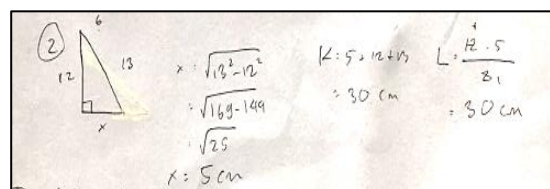 2
6
12
13
x
x = √13²-12²
= √169-144
= √25
x = 5 cm
K = 5+12+13
= 30 cm
L = 12 . 5
= 30 cm